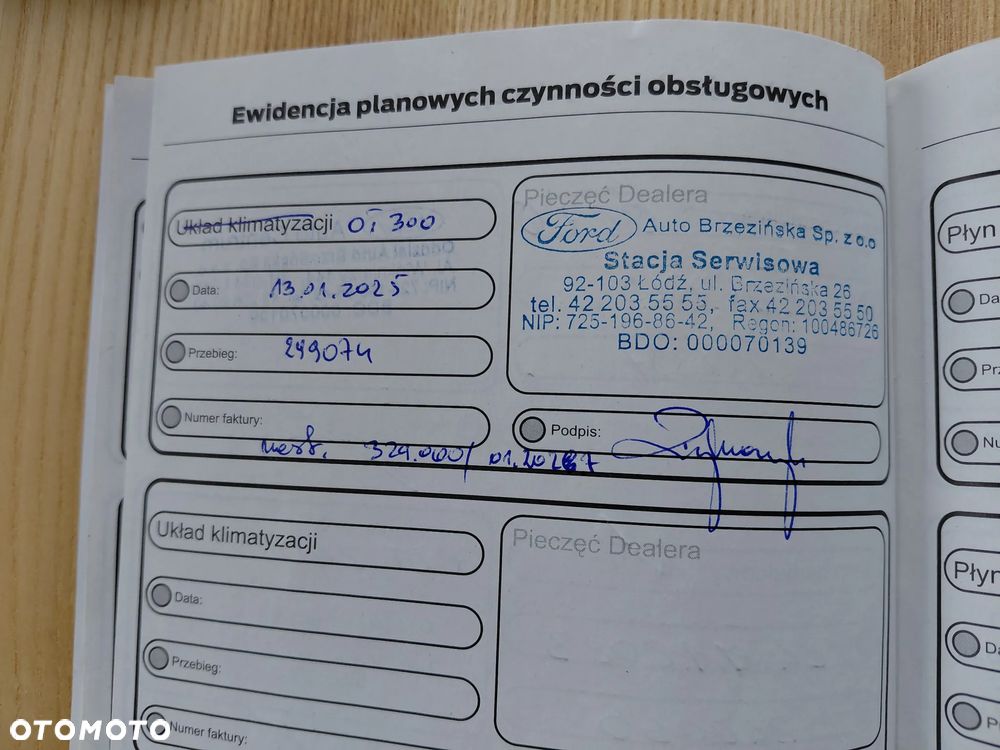 Ewidencja planowych czynności obsługowych
Układ klimatyzacji OT 300
Data: 13.01.2025
Przebieg: 299074
Numer faktury:
nast. 329.000/ 01.2027
Pieczęć Dealera
Ford Auto Brzezińska Sp. z o.o
Stacja Serwisowa
92-103 Łódź, ul. Brzezińska 26
tel. 42 203 55 55, fax 42 203 55 50
NIP: 725-196-86-42, Regon: 100486726
BDO: 000070139
Podpis:
Układ klimatyzacji
Data:
Przebieg:
Numer faktury:
Pieczęć Dealera
Płyn
Da
Pr
Nu
Płyn
Da
P
OTOMOTO